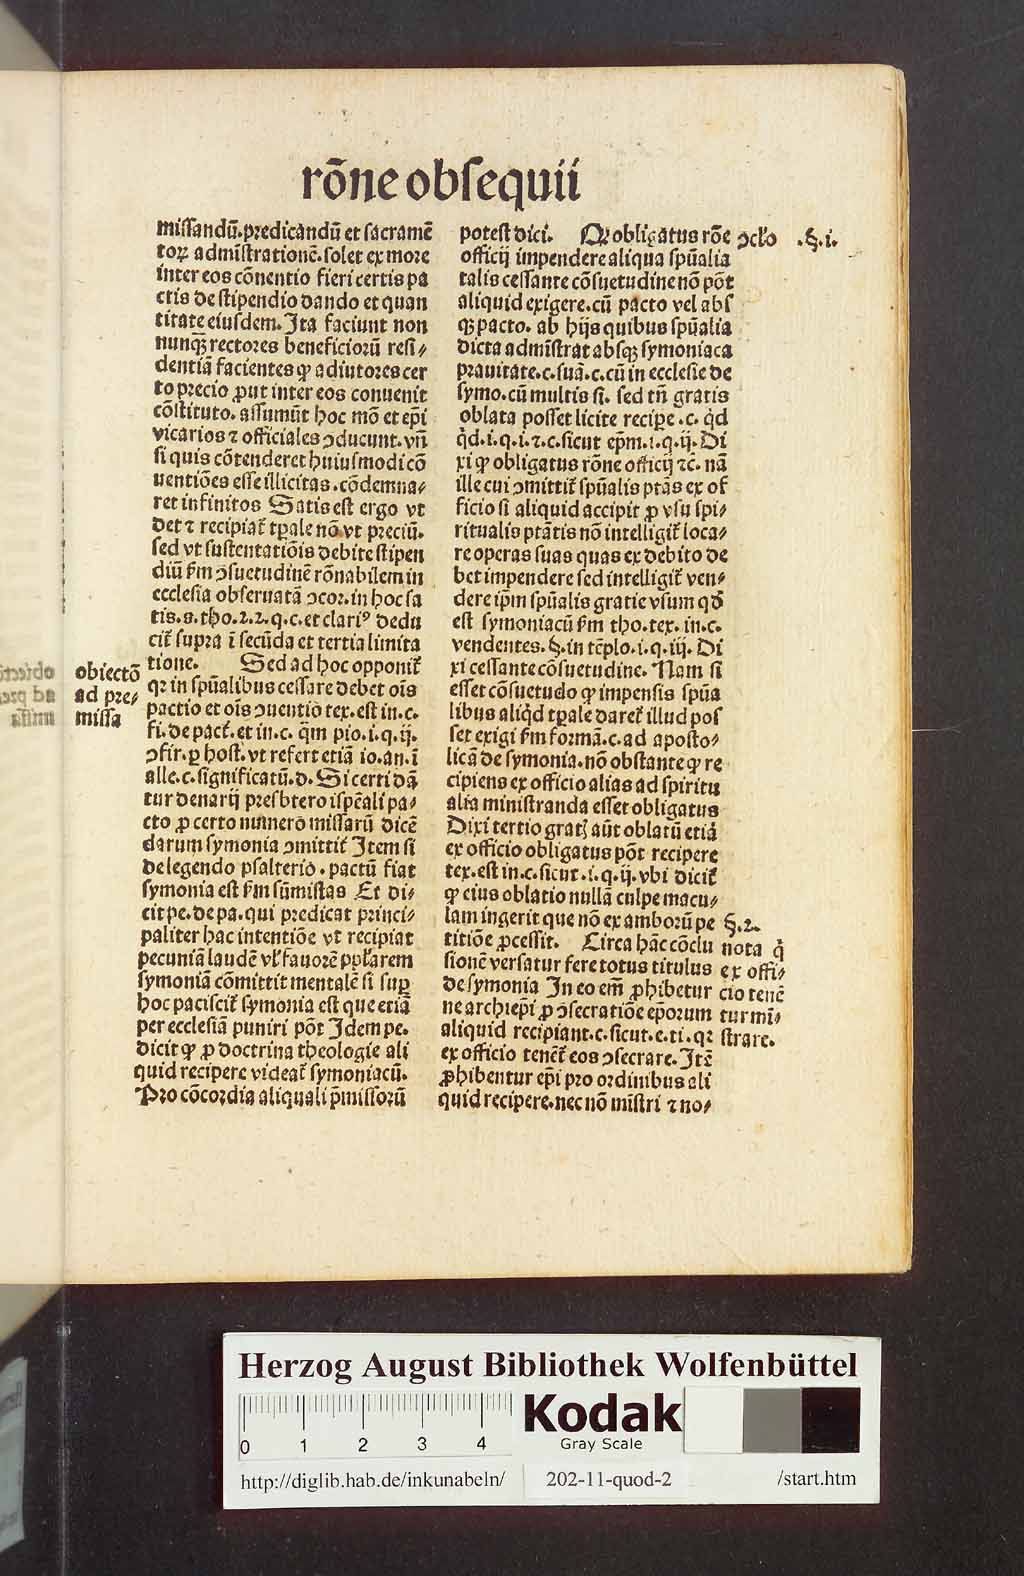 rōne obsequii
missandū.predicandū et sacramē
toꝝ admīstrationē.solet ex more
inter eos cōnentio fieri certis pa
ctis de stipendio dando et quan
titate eiusdem.Ita faciunt non
nunqꝫ rectores beneficiorū resi⸗
dentiā facientes ꝙ adiutores cer
to precio ꝓut inter eos conuenit
cōstituto.assumūt hoc mō et ep̄i
vicarios ⁊ officiales ↄducunt.vn̄
si quis cōtenderet huiusmodi cō
uentiōes esse illicitas.cōdemna⸗
ret infinitos Satis est ergo vt
det ⁊ recipiat᷑ tꝑale nō vt preciū.
sed vt sustentatiōis debite stipen
diū ẜm ↄsuetudinē rōnabilem in
ecclesia obseruatā ↄcor.in hoc sa
tis.s.tho.2.2.q.c.et clariꝰ dedu
cit᷑ supra ī secūda et tertia limita
tione. Sed ad hoc opponit᷑
qꝛ in spūalibus cessare debet oīs
pactio et oīs ↄuentio tex.est in.c.
fi.de pact᷑.et in.c.q̄m pio.i.q.ij.
ↄfir.ꝑ host.vt refert etiā io.an.ī
alle.c.significatū.d.Si certi dā
tur denarij presbtero ispēali pa⸗
cto ꝓ certo numero missarū dicē
darum symonia ↄmittit᷑ Item si
de legendo psalterio.pactū fiat
symonia est ẜm sūmistas Et di⸗
cit pe.de pa.qui predicat princi⸗
paliter hac intentiōe vt recipiat
pecuniā laudē vl᷑ fauorē ppl᷑arem
symoniā cōmittit mentalē si suꝑ
hoc paciscit᷑ symonia est que etiā
per ecclesiā puniri pōt Idem pe.
dicit ꝙ ꝓ doctrina theologie ali
quid recipere videat᷑ symoniacū.
Pro cōcordia aliquali p̄missorū
obiectō
ad pre⸗
missa
potest dici. Qꝫ obligatus rōe
officij impendere aliqua spūalia
talis cessante cōsuetudine nō pōt
aliquid exigere.cū pacto vel abs
qꝫ pacto.ab hijs quibus spūalia
dicta admīstrat absqꝫ symoniaca
prauitate.c.suā.c.cū in ecclesie de
symo.cū multis si. sed tn̄ gratis
oblata posset licite recipe.c.q̇d
q̇d.i.q.i.⁊.c.sicut ep̄m.i.q.ij.Di
xi ꝙ obligatus rōne officij ⁊c.nā
ille cui ↄmittit᷑ spūalis ptās ex of
ficio si aliquid accipit ꝓ vsu spi⸗
ritualis ptātis nō intelligit᷑ loca⸗
re operas suas quas ex debito de
bet impendere sed intelligit᷑ ven⸗
dere ip̄m spūalis gratie vsum qđ
est symoniacū ẜm tho.tex.in.c.
vendentes.§.in tēplo.i.q.iij.Di
xi cessante cōsuetudine. Nam si
esset cōsuetudo ꝙ impensis spūa
libus aliq̇d tꝑale daret᷑ illud pos
set exigi ẜm formā.c.ad aposto⸗
licā de symonia.nō obstante ꝙ re
cipiens ex officio alias ad spiritu
alia ministranda esset obligatus
Dixi tertio gratꝭ aūt oblatū etiā
ex officio obligatus pōt recipere
tex.est in.c.sicut.i.q.ij.vbi dicit᷑
ꝙ eius oblatio nullā culpe macu⸗
lam ingerit que nō ex amborū pe
titiōe ꝓcessit. Circa hāc cōclu
sionē versatur fere totus titulus
de symonia In eo em̄ ꝓhibetur
ne archiep̄i ꝓ ↄsecratiōe ep̄orum
aliquid recipiant.c.sicut.e.ti.qꝛ
ex officio tenēt᷑ eos ↄsecrare.Itē
ꝓhibentur ep̄i pro ordinibus ali
quid recipere.nec nō mīstri ⁊ no⸗
ↄcl᷑o .§.i.
§.2.
nota q̇
ex offi⸗
cio tenē
tur mī⸗
strare.
Herzog August Bibliothek Wolfenbüttel
0 1 2 3 4
Kodak
Gray Scale
http://diglib.hab.de/inkunabeln/ 202-11-quod-2 /start.htm